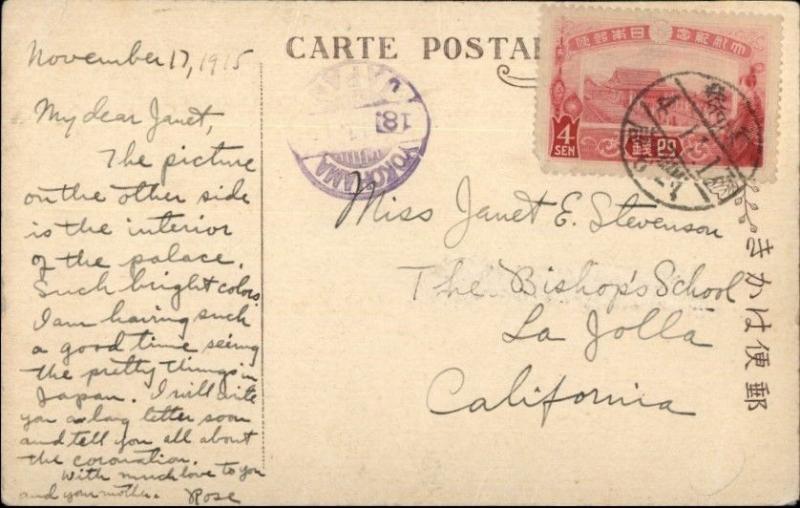 November 17, 1915
My dear Janet,
The picture
on the other side
is the interior
of the palace.
Such bright colors.
I am having such
a good time seeing
the pretty things in
Japan. I will write
you a long letter soon
and tell you all about
the coronation.
With much love to you
and your mother. Rose
CARTE POSTAL
JAPAN
18.
YOKOHAMA
大礼紀念 日本郵便
4
SEN
四
銭
Miss Janet E. Stevenson
The Bishop's School
La Jolla
California
きかは便郵